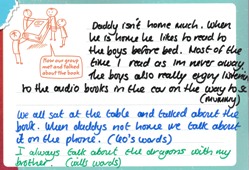 How our group
met and talked
about the book
Daddy isn't home much. When
he is home he likes to read to
the boys before bed. Most of the
time I read as Im never away.
The boys also really enjoy listening
to the audio books in the car on the way to sc
(mummy)
We all sat at the table and talked about the
book. When daddys not home we talk about
it on the phone. (Leo's words)
I always talk about the dragons with my
brother. (Wills words)